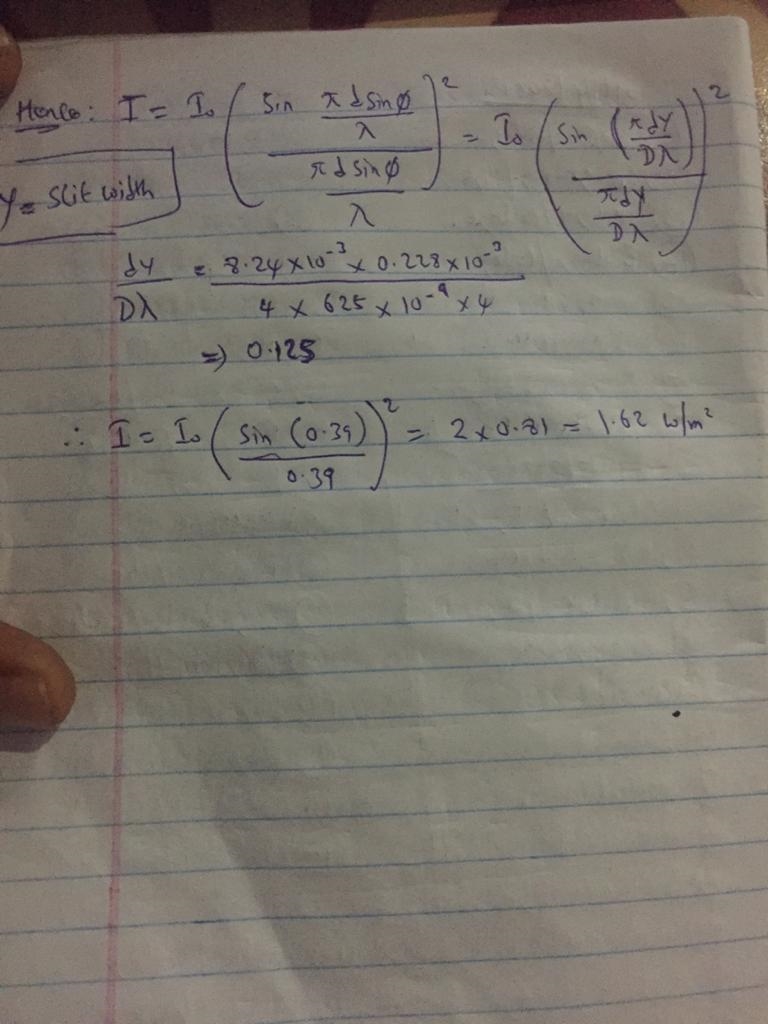 Hence: I = I₀ ( sin πdsinφ/λ / πdsinφ/λ )² = I₀ ( sin (πdY/Dλ) / πdY/Dλ )²
Y = Slit width
dY/Dλ = 8.24×10⁻³ × 0.228×10⁻³ / 4 × 625 × 10⁻⁹ × 4
⇒ 0.125
∴ I = I₀ ( sin (0.39) / 0.39 )² = 2 × 0.81 = 1.62 w/m²